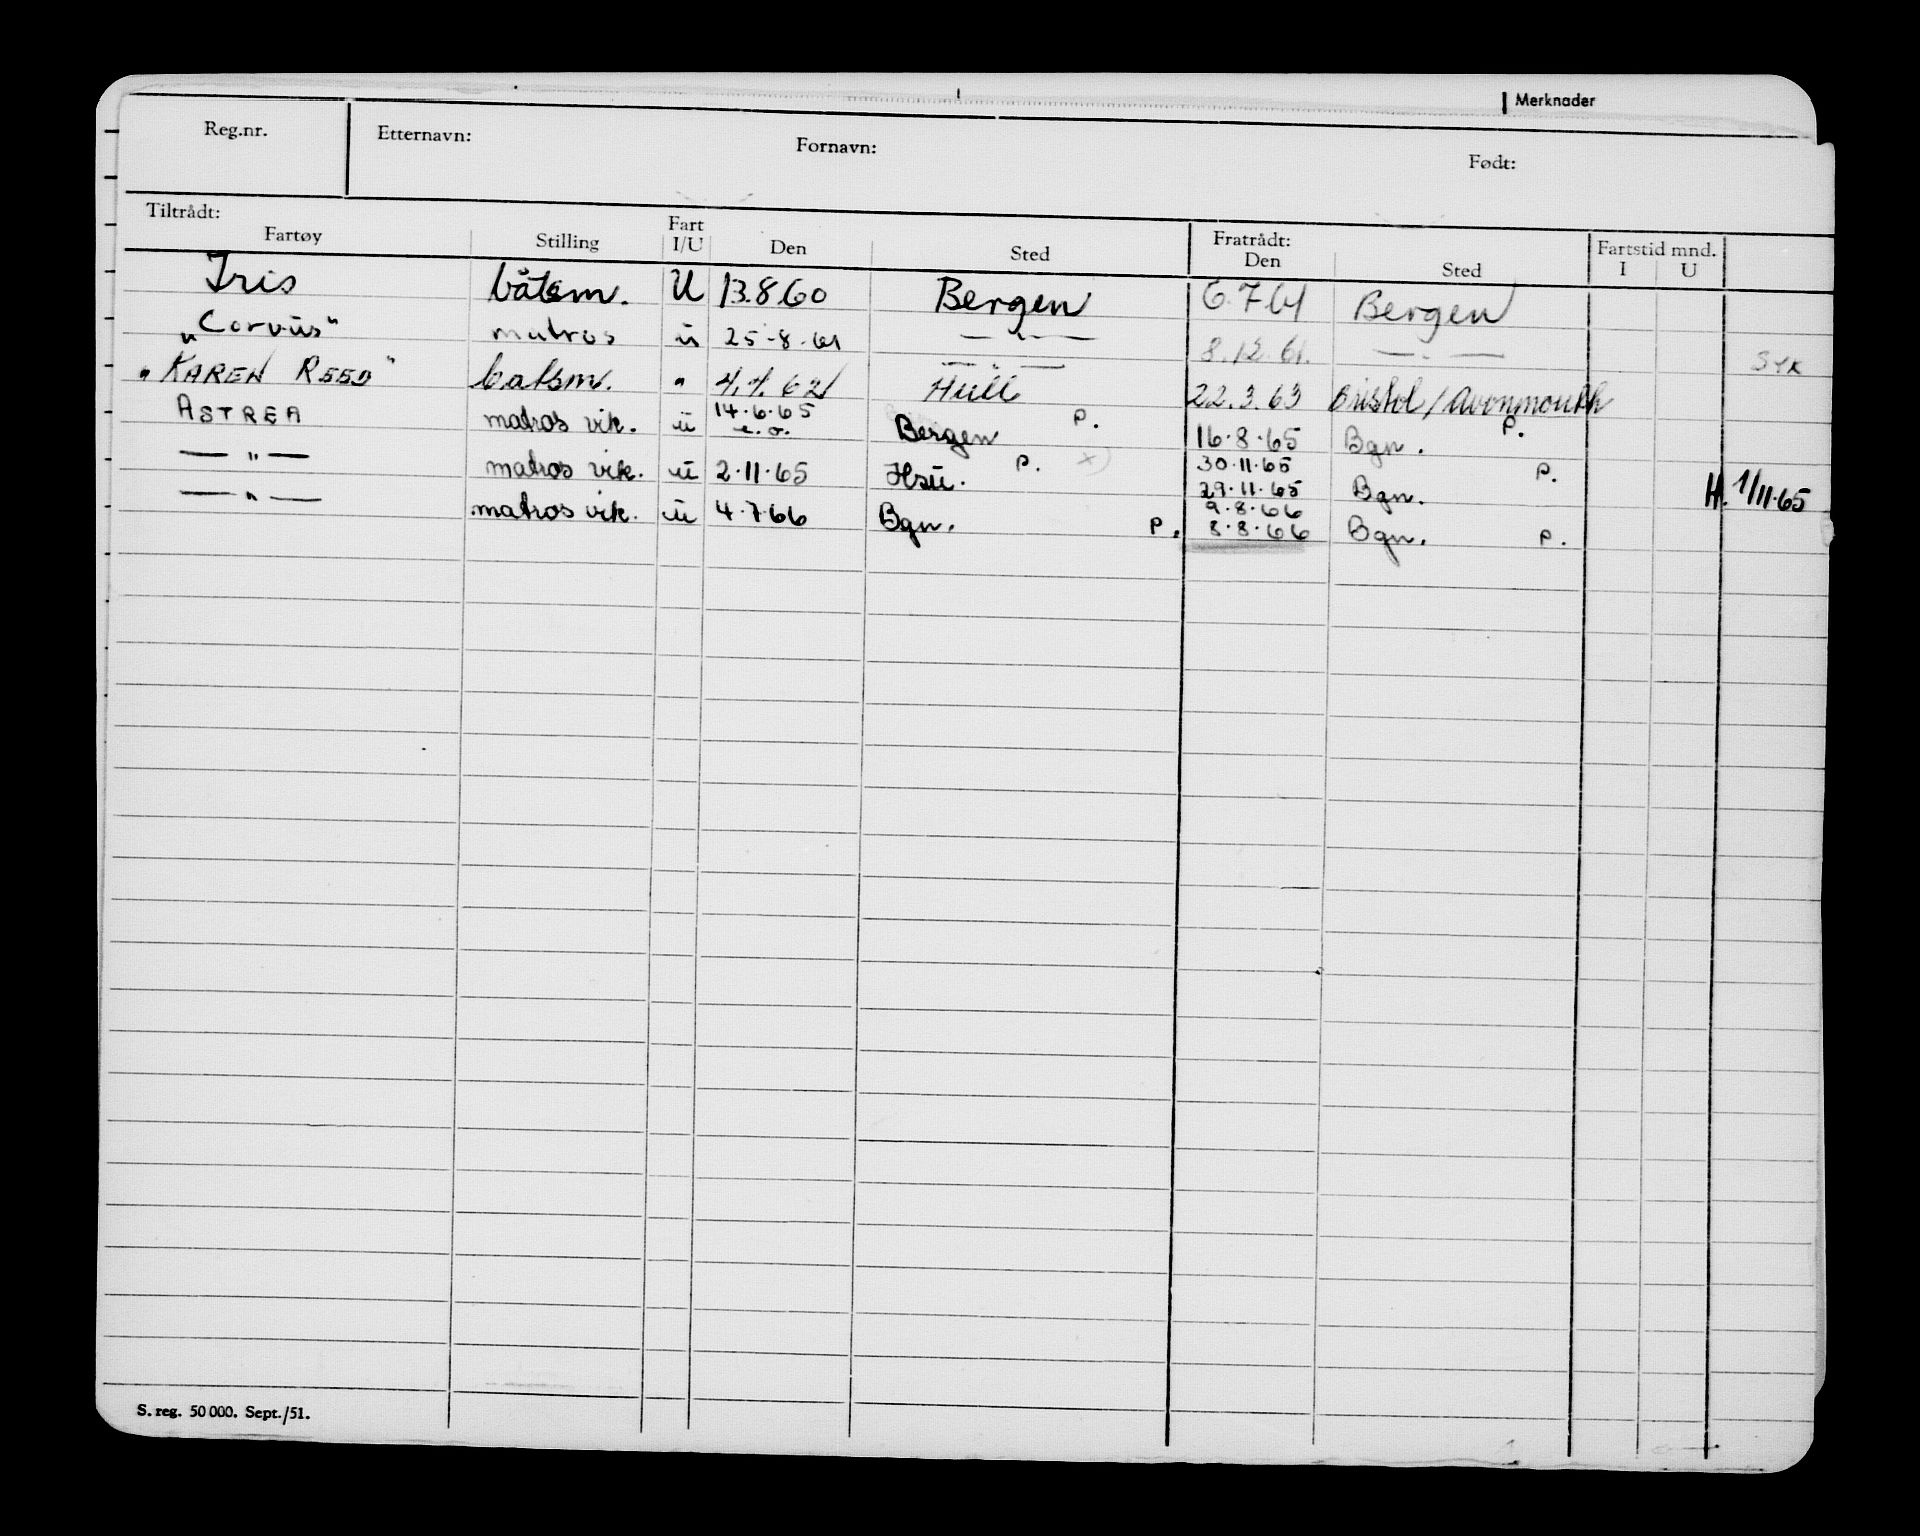 Merknader
Reg.nr. Etternavn: Fornavn: Født:
Tiltrådt: Fratrådt:
Fartøy Stilling Fart I/U Den Sted Den Sted Fartstid mnd. I U
Iris båtsm. U 13.8.60 Bergen 6.7.61 Bergen
"Corvus" matros u 25-8-61 — " — 8.12.61. — " — SYK
"KAREN REED" batsm. " 4.4.62 Hull 22.3.63 Bristol/Avonmouth
ASTREA matros vik. u 14.6.65 e.o. Bergen P. 16.8.65 Bgn. P.
— " — matros vik. u 2.11.65 Hsu. P. x) 30.11.65 29.11.65 Bgn. P. H. 1/11.65
— " — matros vik. u 4.7.66 Bgn. P. 9.8.66 8.8.66 Bgn. P.
S. reg. 50 000. Sept./51.